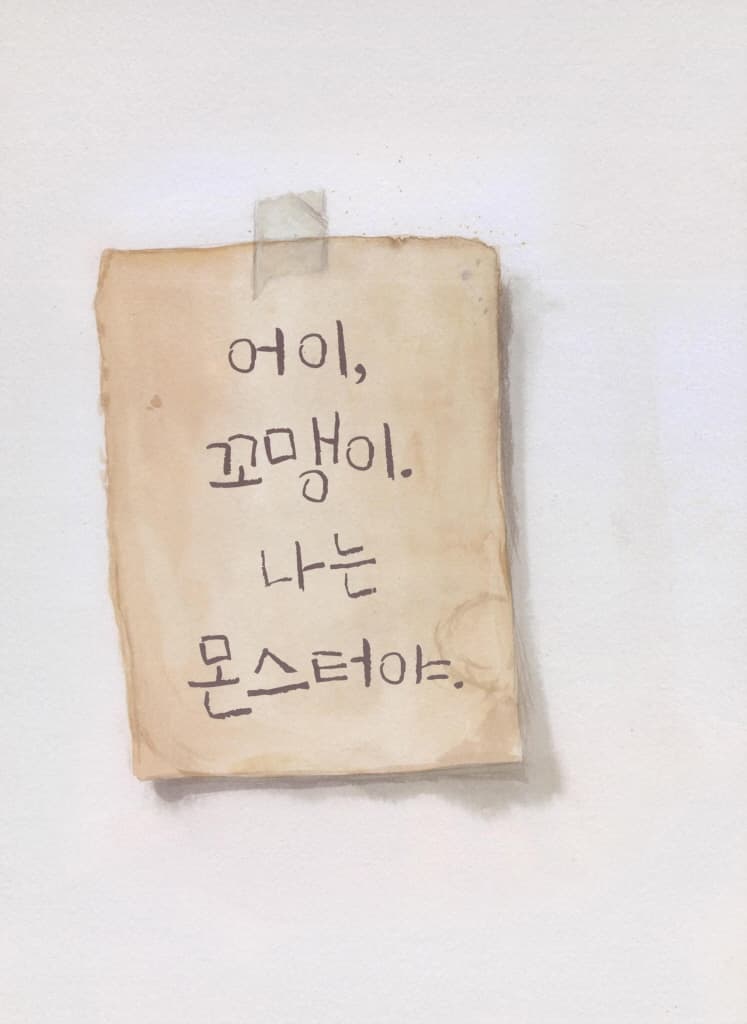 어이,
꼬맹이.
나는
몬스터야.